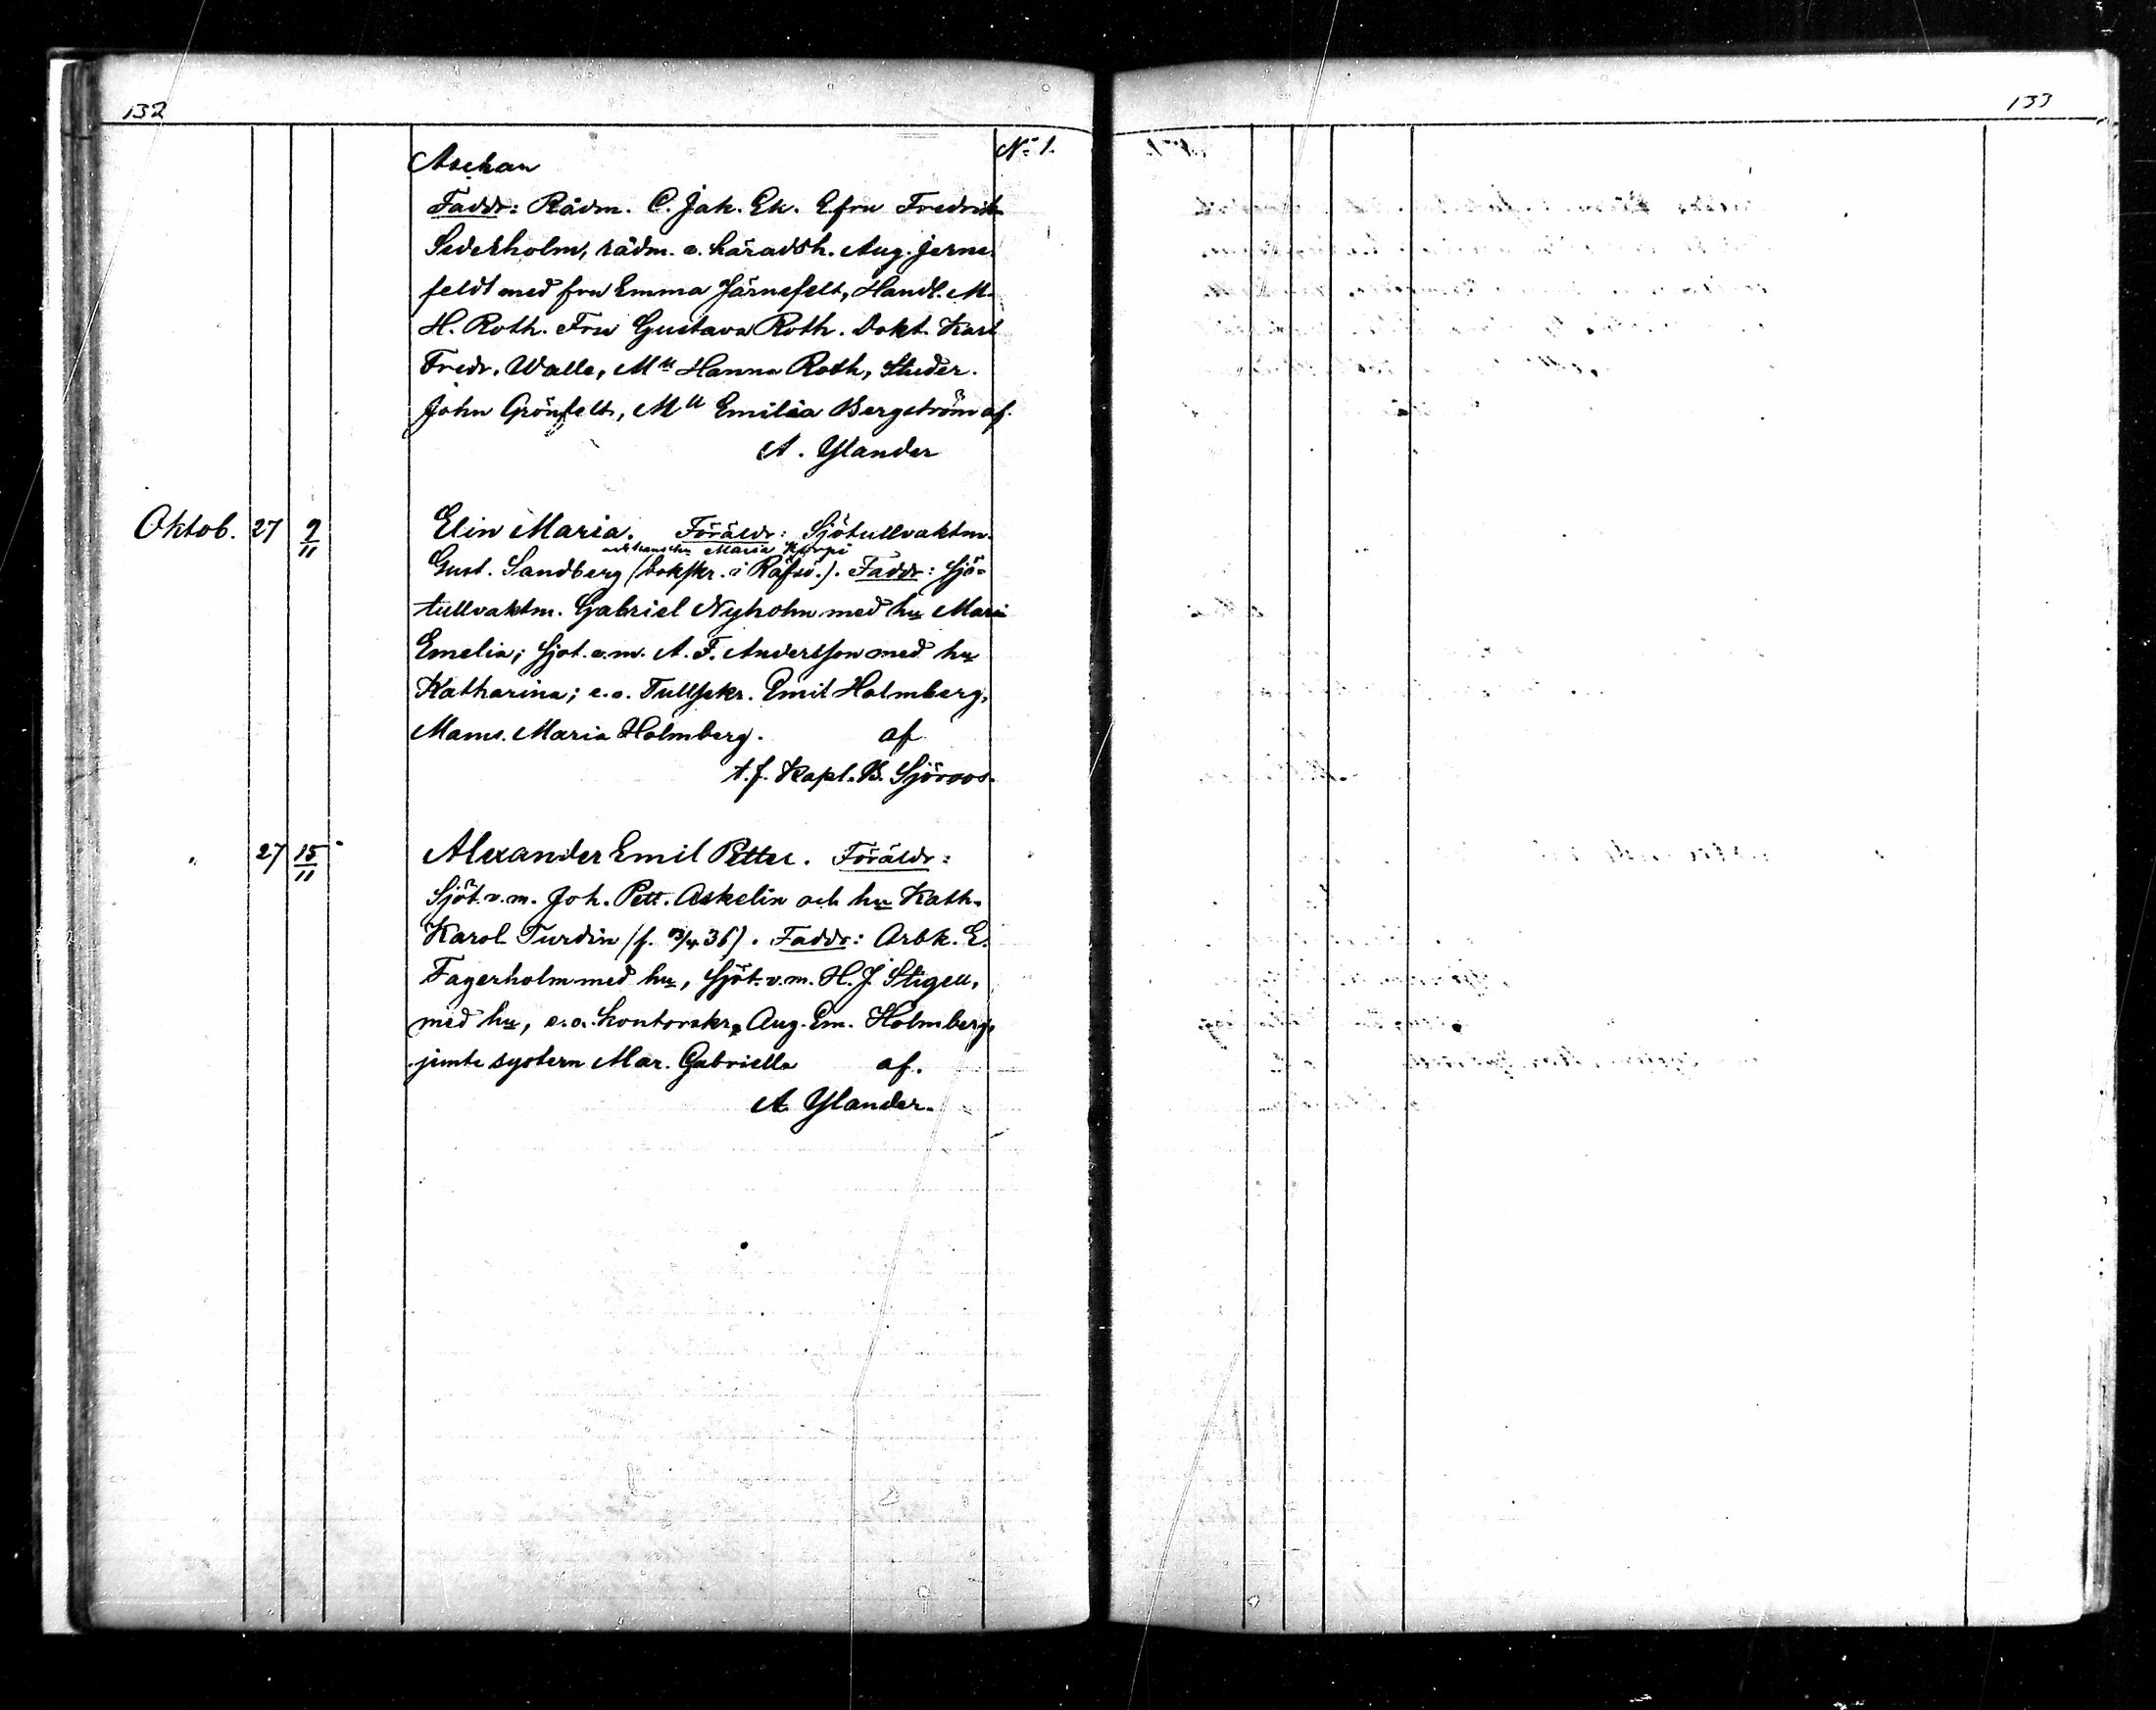 132
133
Aschan
No 1.
Faddr: Rådm. C. Jak. Ek. Efru Fredrik
Sederholm, rådm. o. häradsh. Aug. Jerne-
feldt med fru Emma Järnefelt, Handl. M.
H. Roth. Fru Gustava Roth. Dokt. Karl
Fredr. Walle, Mll Hanna Roth, Studer.
John Grönfelt, Mll Emilia Bergström af.
A. Ylander
Oktob. 27 9/11 Elin Maria. Föräldr: Sjötullvaktm.
och hans hu Maria Karpi
Gust. Sandberg (bokskr. i Räfsö.). Faddr: Sjö-
tullvaktm. Gabriel Nyholm med hu Maria
Emelia; Sjöt. v.m. A. F. Andersson med hu
Katharina; e.o. Tullskr. Emil Holmberg,
Mams. Maria Holmberg. af
t.f. Kapl. B. Sjöroos.
" 27 15/11 Alexander Emil Petter. Föräldr:
Sjöt. v.m. Joh. Pett. Askelin och hu Kath.
Karol. Turdin (f. 36). Faddr: Arbk. E.
Fagerholm med hu, Sjöt. v.m. H. J. Stigell,
med hu, e.o. kontorskr. Aug. Em. Holmberg,
jemte systern Mar. Gabriella af.
A. Ylander.